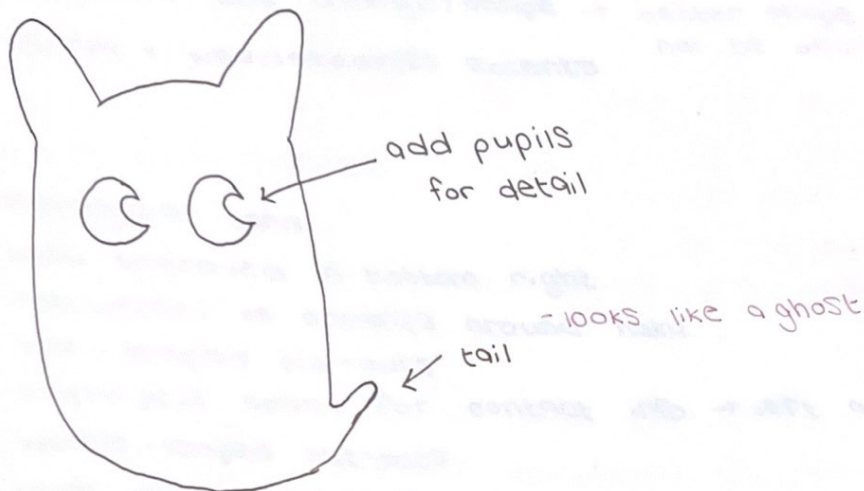 add pupils
for detail
-looks like a ghost
tail